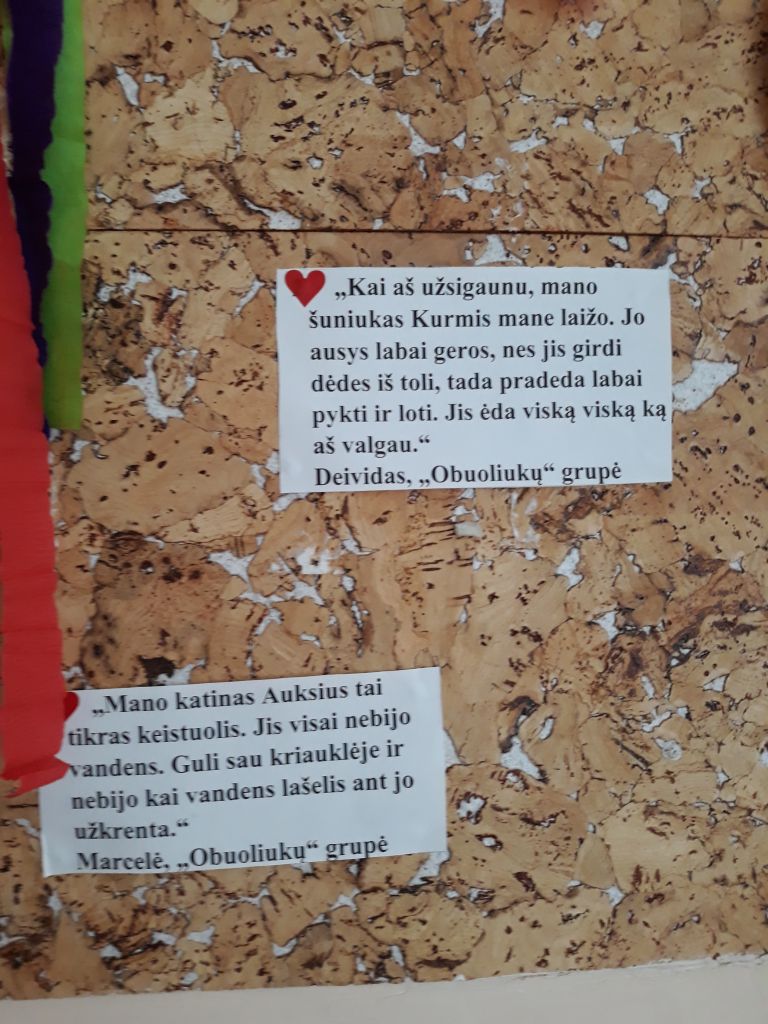 „Kai aš užsigaunu, mano
šuniukas Kurmis mane laižo. Jo
ausys labai geros, nes jis girdi
dėdes iš toli, tada pradeda labai
pykti ir loti. Jis ėda viską viską ką
aš valgau.“
Deividas, „Obuoliukų“ grupė
„Mano katinas Auksius tai
tikras keistuolis. Jis visai nebijo
vandens. Guli sau kriauklėje ir
nebijo kai vandens lašelis ant jo
užkrenta.“
Marcelė, „Obuoliukų“ grupė